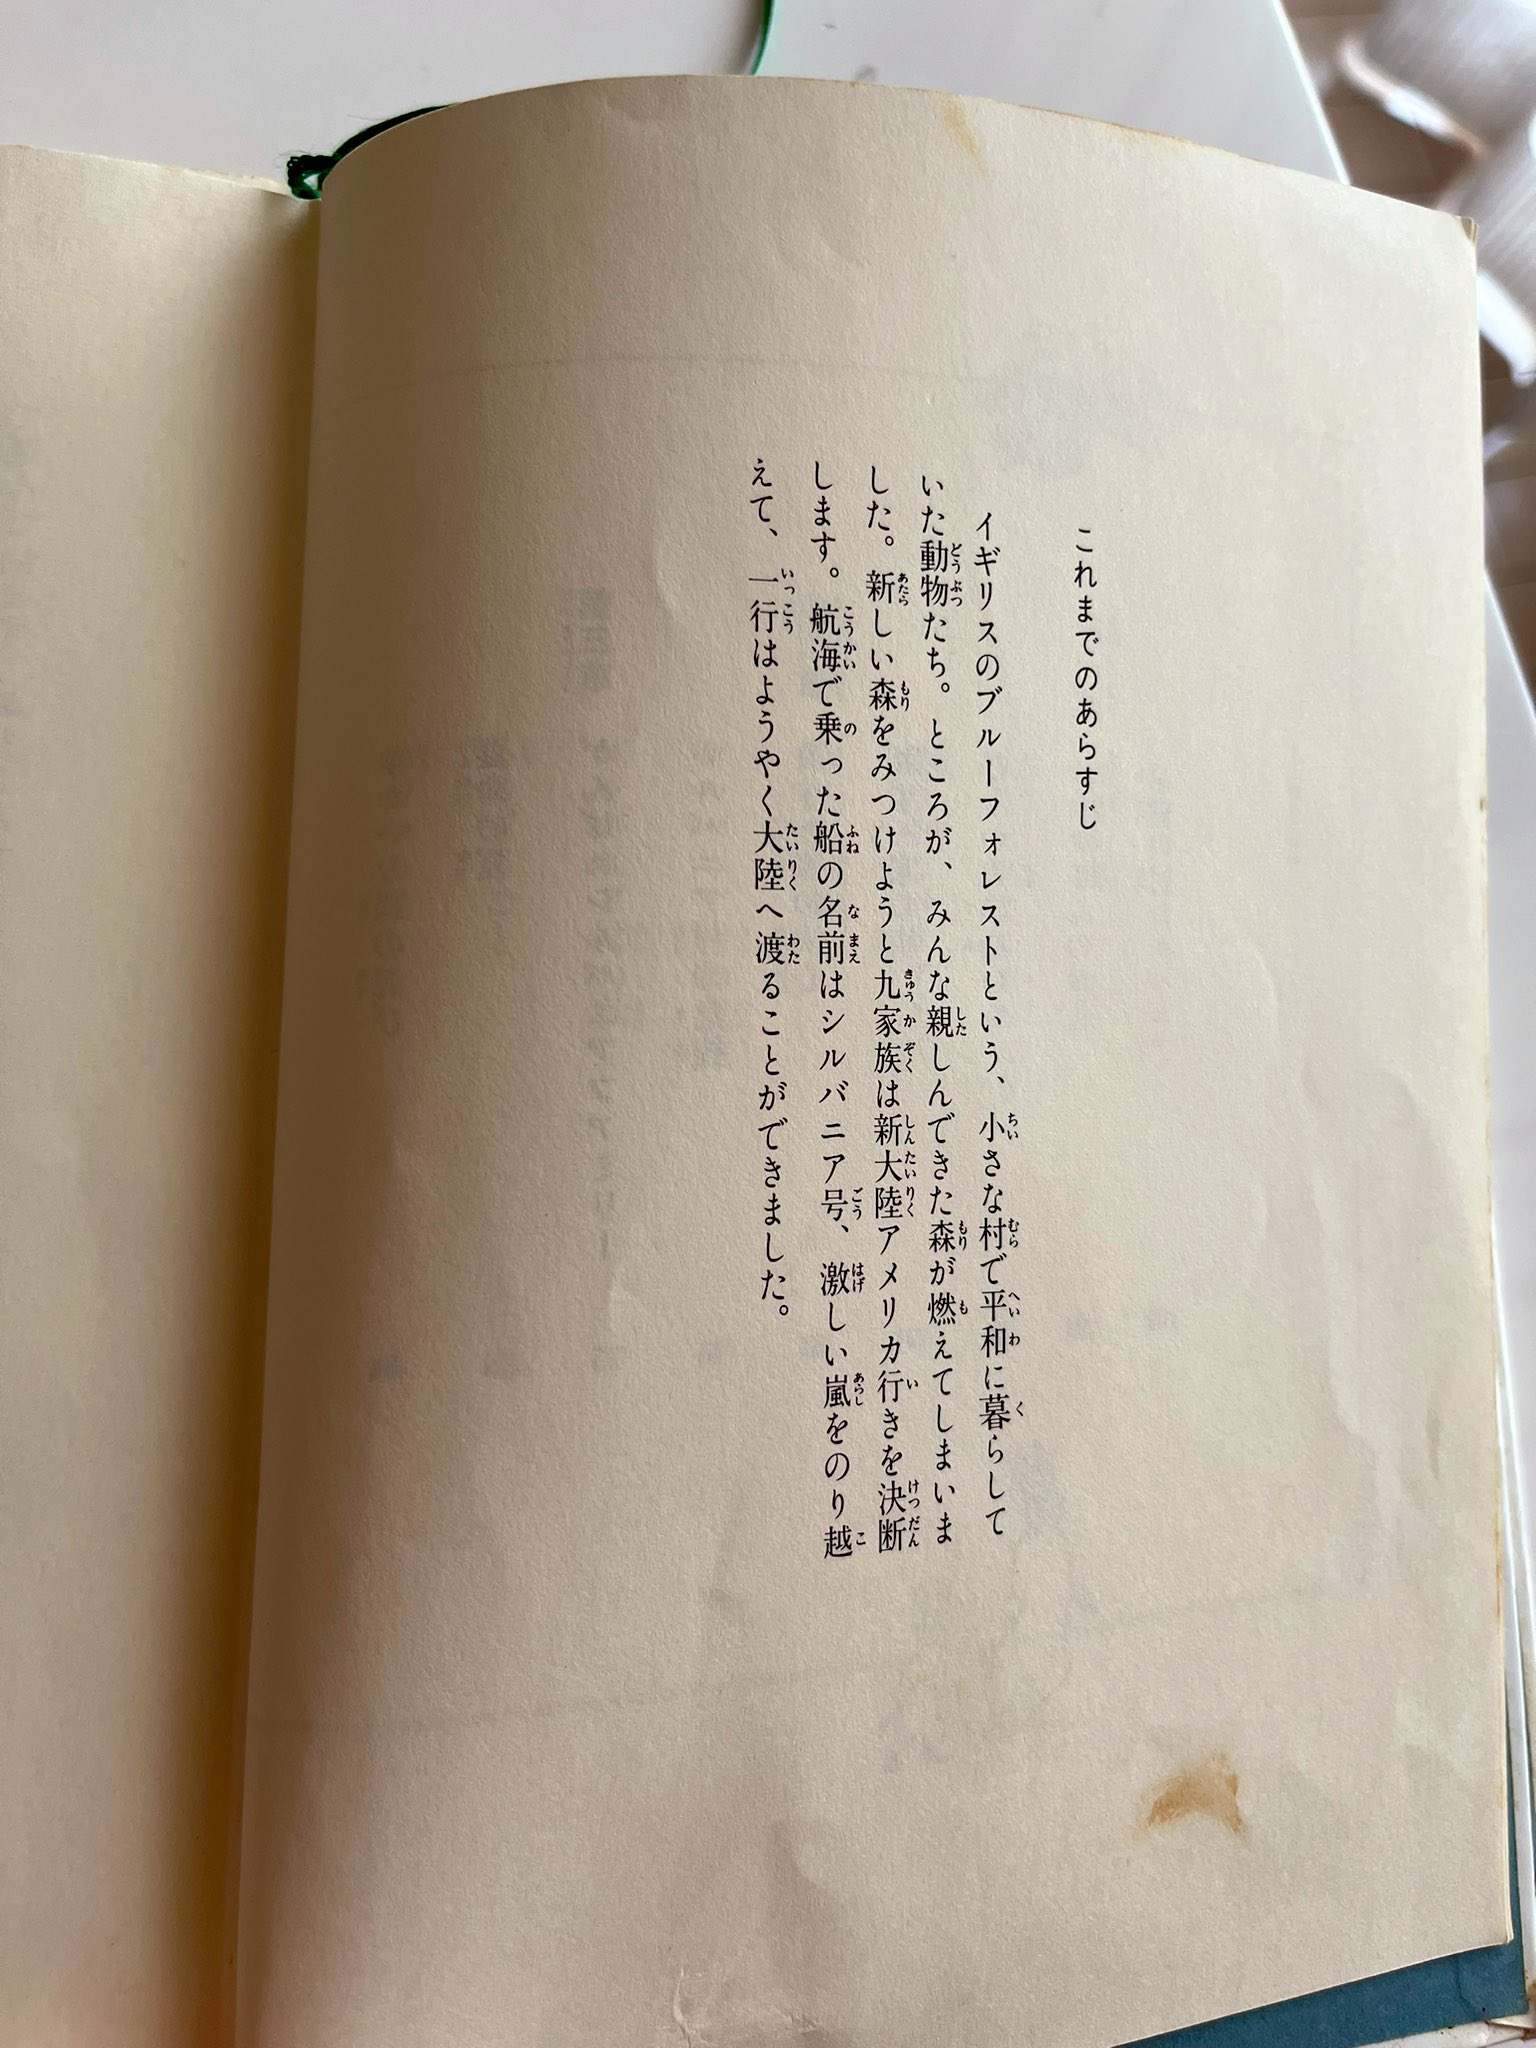 これまでのあらすじ
イギリスのブルーフォレストという、小さな村で平和に暮らして
いた動物たち。ところが、みんな親しんできた森が燃えてしまいま
した。新しい森をみつけようと九家族は新大陸アメリカ行きを決断
します。航海で乗った船の名前はシルバニア号、激しい嵐をのり越
えて、一行はようやく大陸へ渡ることができました。